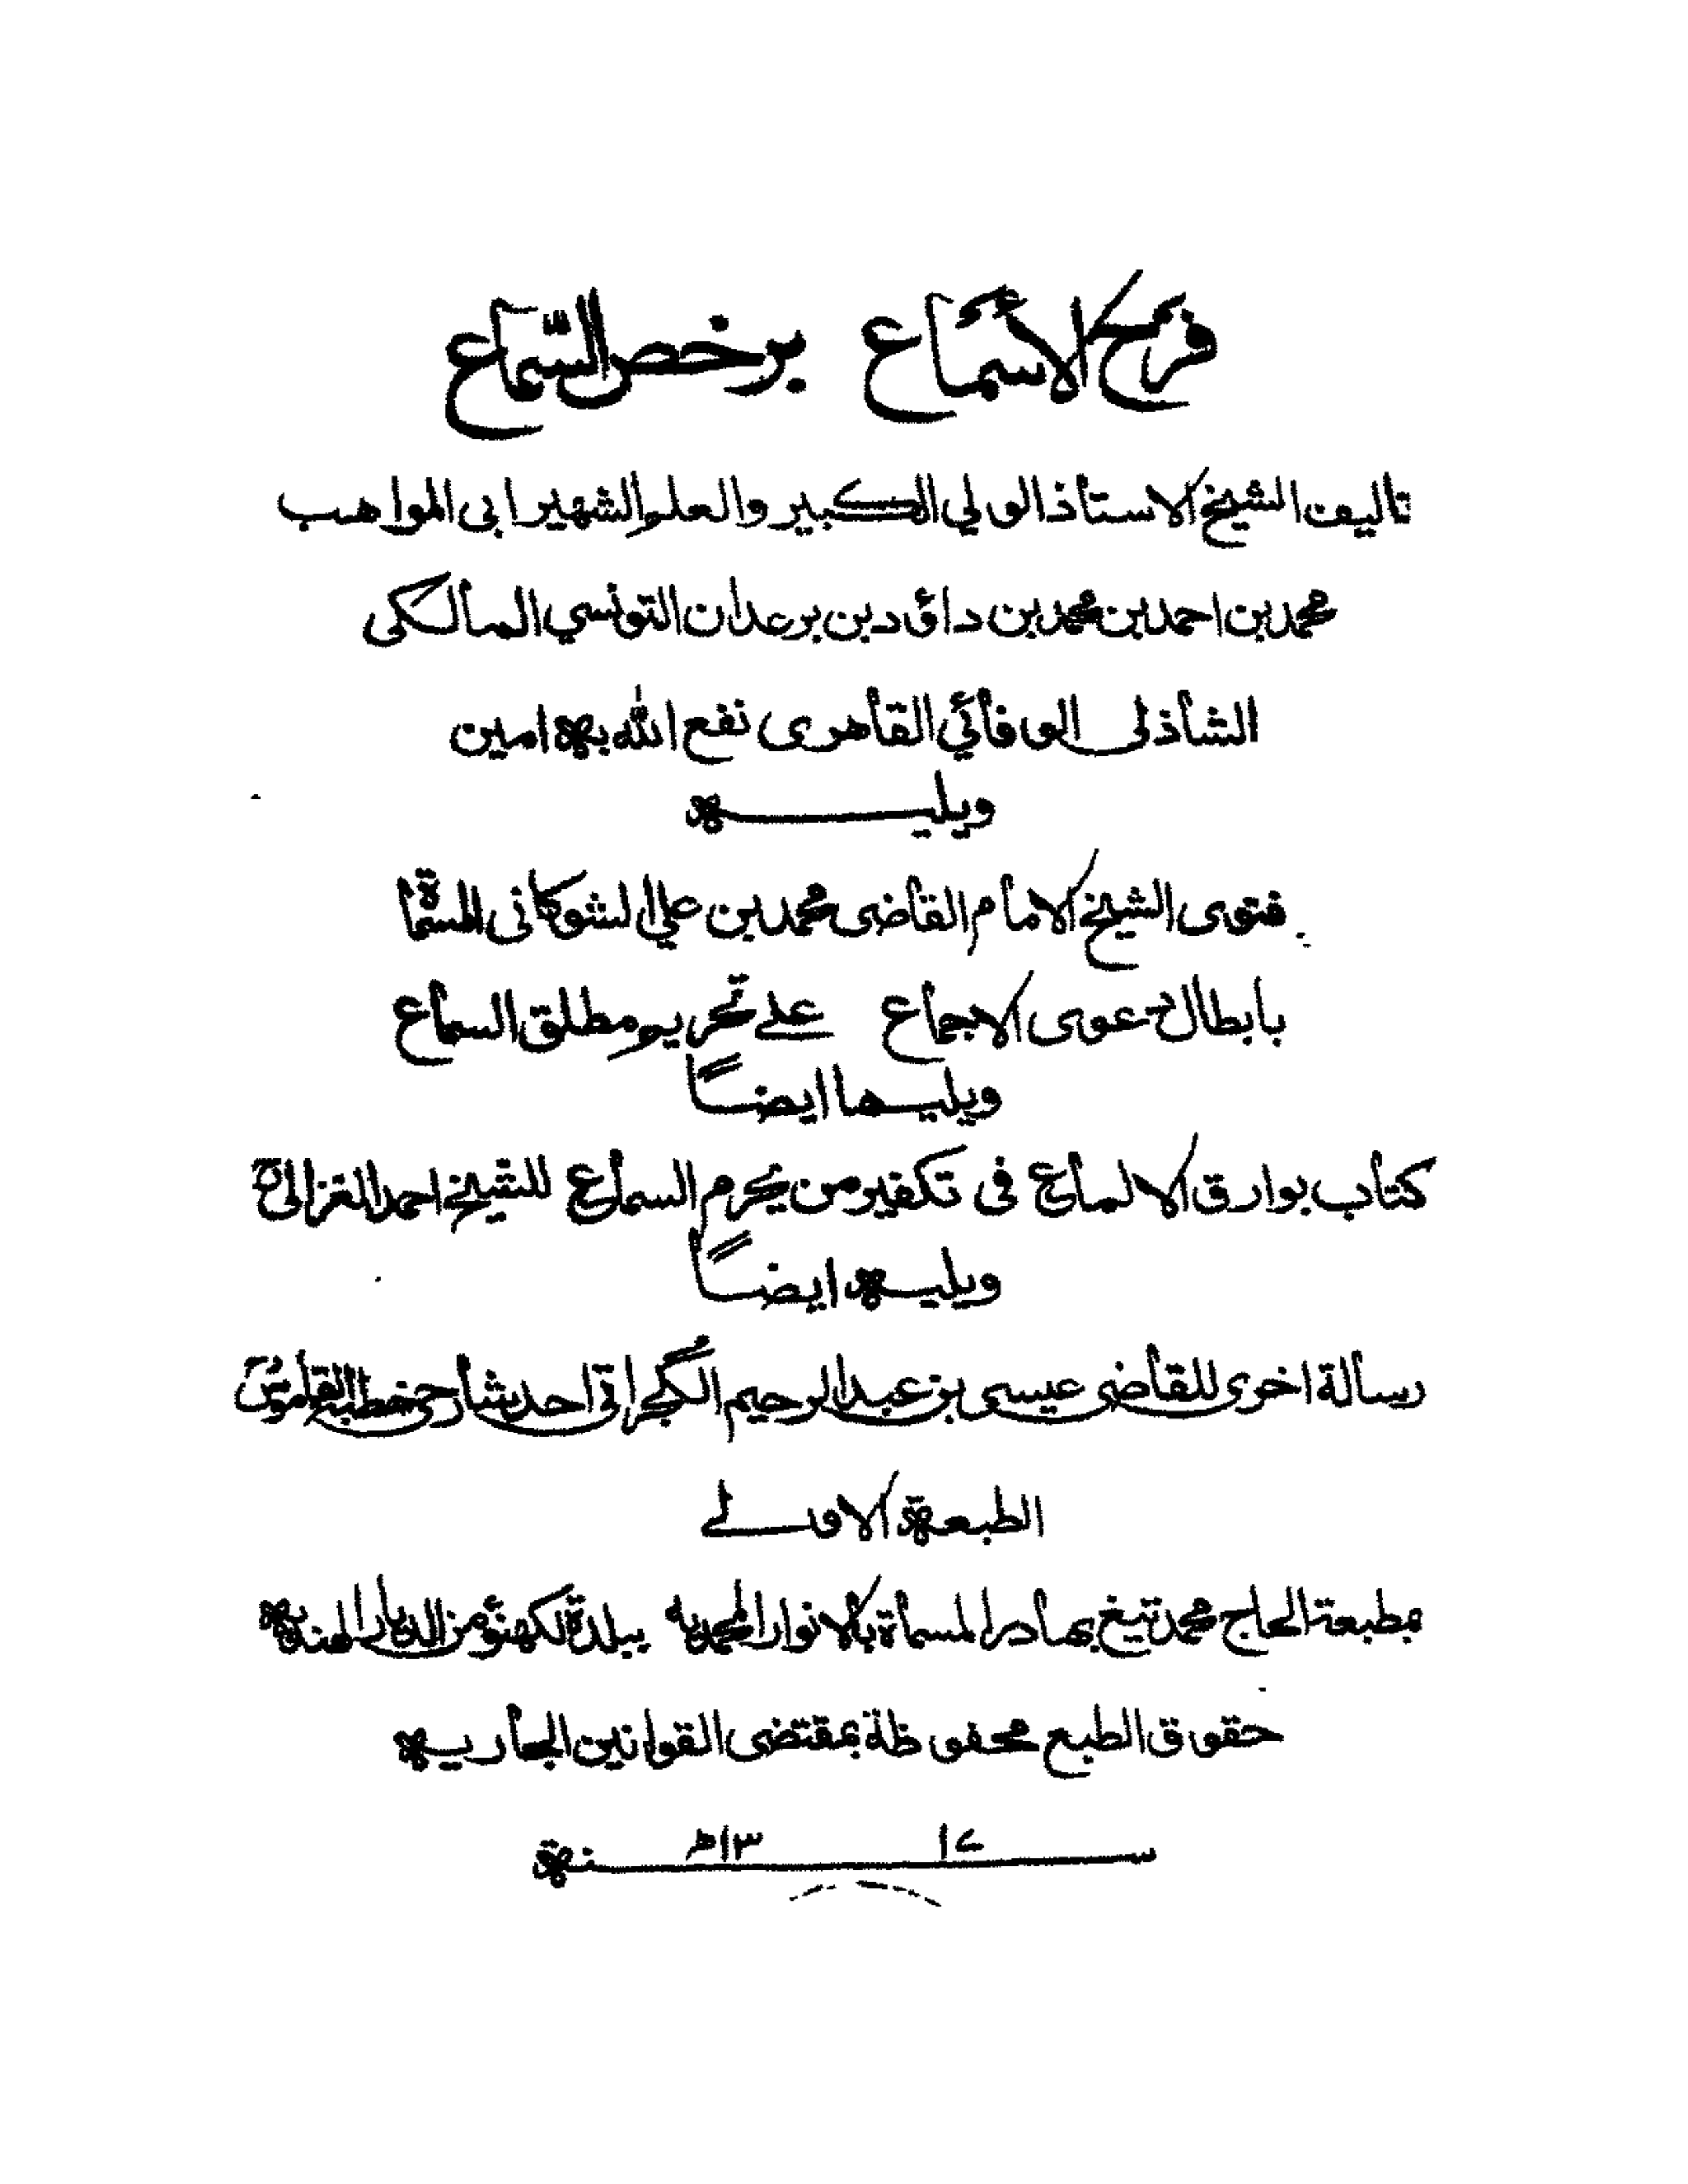 فرح الأسماع برخص السّماع
تاليف الشيخ الاستاذ الولي الكبير والعلم الشهير ابى المواهب
محمد بن احمد بن محمد بن داؤد بن برعدان التونسي المالكى
الشاذلى الوفائي القاهرى نفع الله به امين
ويليه
فتوى الشيخ الامام القاضى محمد بن علي الشوكانى المسماة
بابطال دعوى الاجماع على تحريم مطلق السماع
ويليها ايضاً
كتاب بوارق الالماع فى تكفير من يحرم السماع للشيخ احمد الغزالى
ويليه ايضاً
رسالة اخرى للقاضى عيسى بن عبد الرحيم الگجراتى احد شارحى خطبة القاموس
الطبعة الاولے
بمطبعة الحاج محمد تيغ بهادر المسماة بالانوار المحمديه ببلدة لكهنؤ من الديار الهنديه
حقوق الطبع محفوظة بمقتضى القوانين الجاريه
سنة ١٣١٧ھ